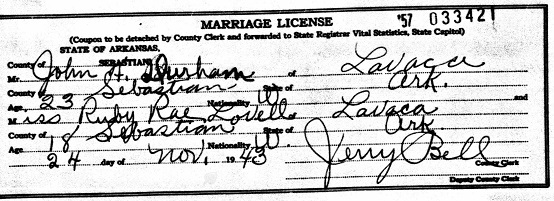 MARRIAGE LICENSE '57 033421
(Coupon to be detached by County Clerk and forwarded to State Registrar Vital Statistics, State Capitol)
STATE OF ARKANSAS,
County of SEBASTIAN
Mr. John H. Durham of Lavacca
County of Sebastian State of Ark.
Age 23 Nationality W and
Miss Ruby Rae Lovell of Lavaca
County of Sebastian State of Ark
Age 18 Nationality W.
24 day of Nov. 1943 Jerry Bell
County Clerk
Deputy County Clerk